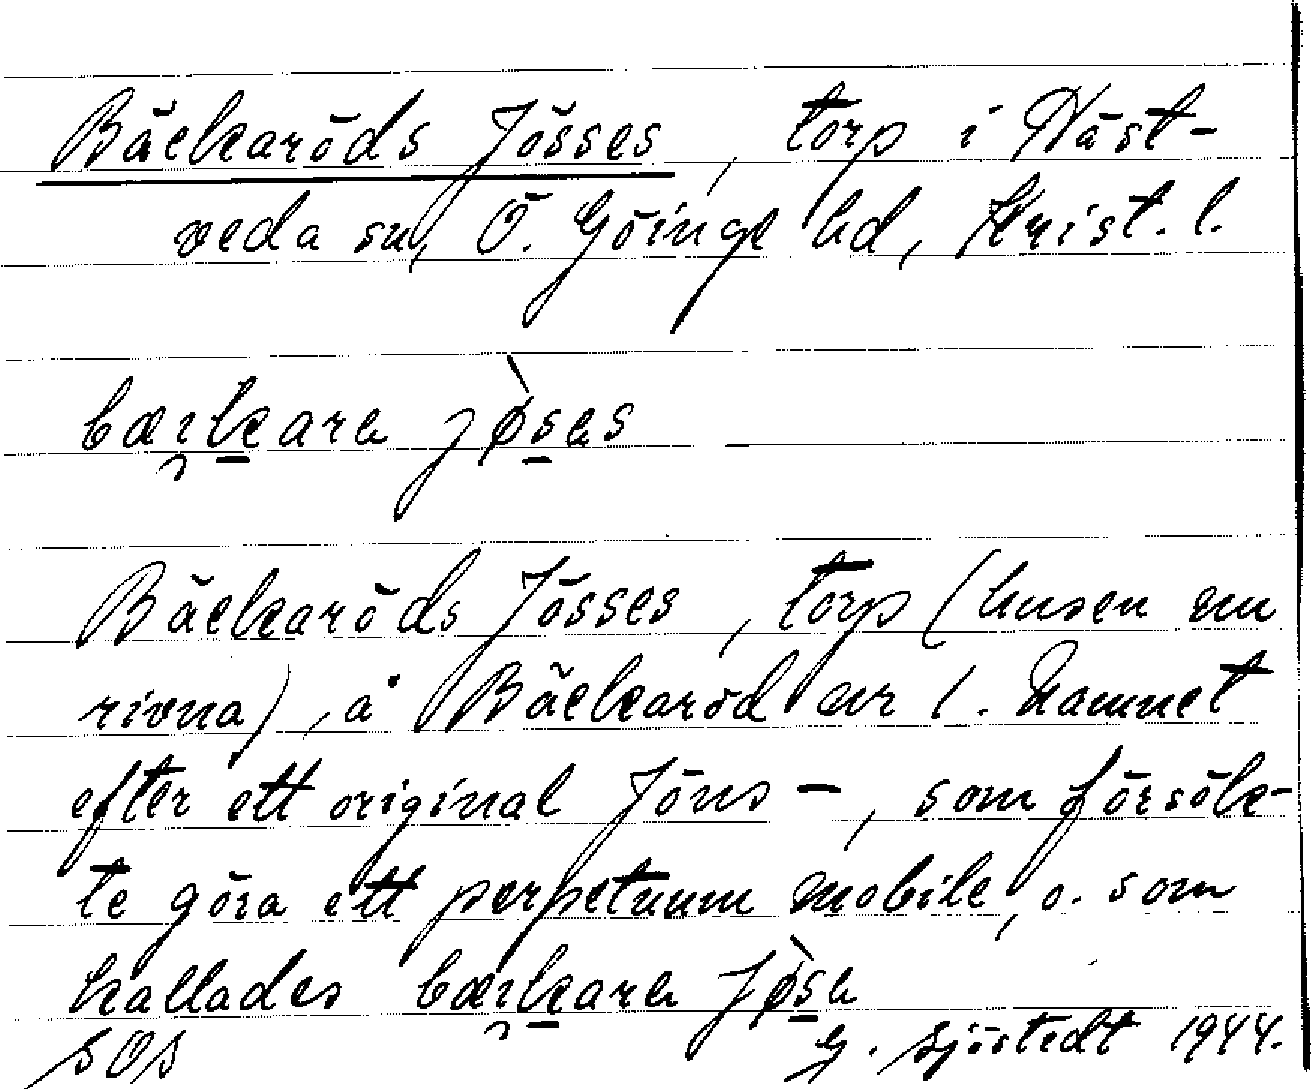 Bäckaröds Jösses, torp i Näst-
veda sn, Ö. Göinge hd, Krist. l.
bæꞧkara jø̀sas
Bäckaröds Jösses, torp (husen nu
rivna), å Bäckaröd nr 1. Namnet
efter ett original Jöns –, som försök-
te göra ett perpetuum mobile, o. som
kallades bæꞧkara jø̀sa
SOS G. Sjöstedt 1944.